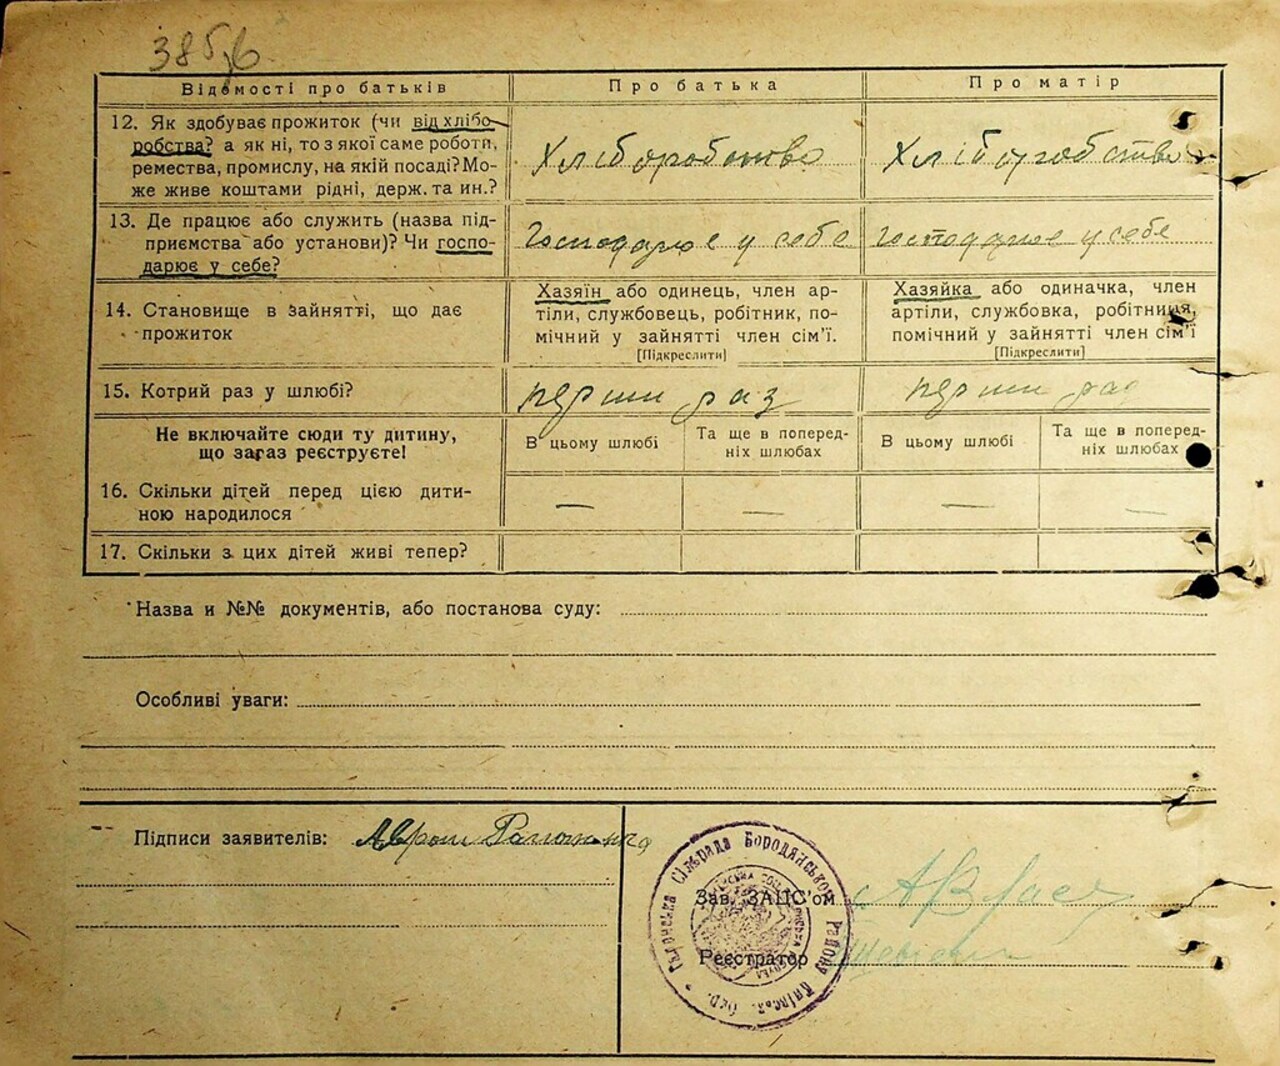 Відомості про батьків
Про батька
Про матір
12. Як здобуває прожиток (чи від хлібо-
робства? а як ні, то з якої саме роботи,
ремества, промислу, на якій посаді? Мо-
же живе коштами рідні, держ. та ин.?
Хліборобство
Хліборобство
13. Де працює або служить (назва під-
приємства або установи)? Чи госпо-
дарює у себе?
Господарює у себе
Господарює у себе
14. Становище в зайнятті, що дає
прожиток
Хазяїн або одинець, член ар-
тіли, службовець, робітник, по-
мічний у зайнятті член сім'ї.
[Підкреслити]
Хазяйка або одиначка, член
артіли, службовка, робітниця,
помічний у зайнятті член сім'ї
[Підкреслити]
15. Котрий раз у шлюбі?
перши раз
перши раз
Не включайте сюди ту дитину,
що зараз реєструєте!
В цьому шлюбі
Та ще в поперед-
ніх шлюбах
В цьому шлюбі
Та ще в поперед-
ніх шлюбах
16. Скільки дітей перед цією дити-
ною народилося
— — — —
17. Скільки з цих дітей живі тепер?
Назва и №№ документів, або постанова суду:
Особливі уваги:
Підписи заявителів:
Зав. ЗАЦС'ом
Реєстратор
Сільрада Бородянського Району Київськ. Окр.